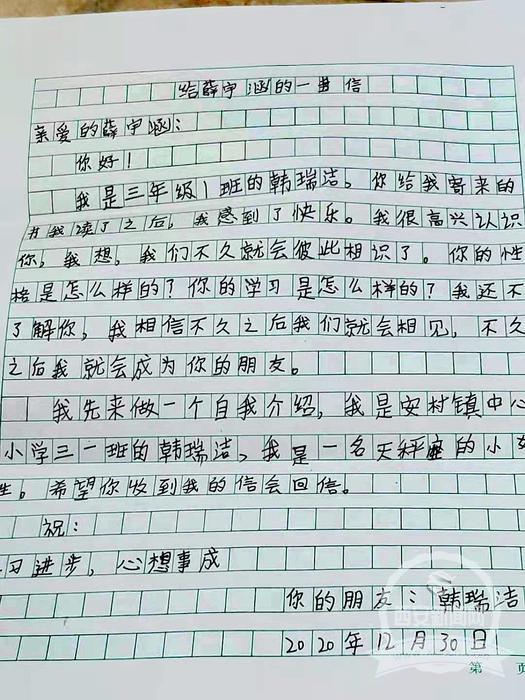 给薛宇涵的一封信
亲爱的薛宇涵：
你好！
我是三年级1班的韩瑞洁。你给我寄来的
书我读了之后，我感到了快乐。我很高兴认识
你，我想，我们不久就会彼此相识了。你的性
格是怎么样的？你的学习是怎么样的？我还不
了解你，我相信不久之后我们就会相见，不久
之后我就会成为你的朋友。
我先来做一个自我介绍，我是安村镇中心
小学三一班的韩瑞洁、我是一名天秤座的小女
生。希望你收到我的信会回信。
祝：
习进步，心想事成
你的朋友：韩瑞洁
2020年12月30日
西安新闻网
第 页